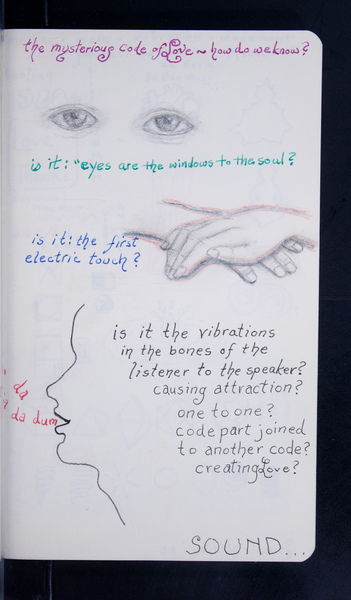 the mysterious code of Love ~ how do we know?
is it: "eyes are the windows to the soul?
is it: the first
electric touch?
is it the vibrations
in the bones of the
listener to the speaker?
causing attraction?
da
da dum
one to one?
code part joined
to another code?
creating Love?
SOUND...